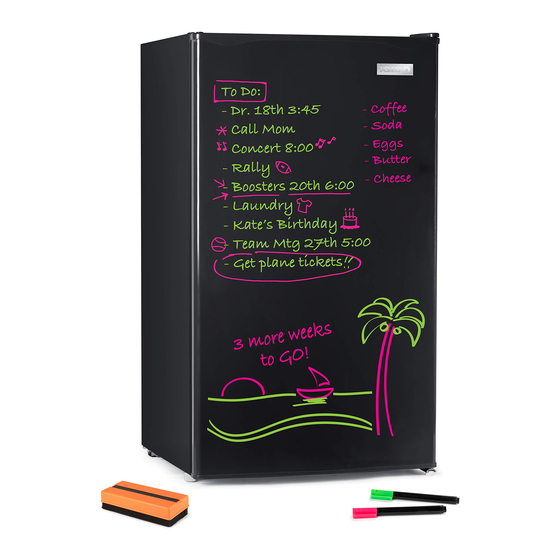 To Do:
- Dr. 18th 3:45
Call Mom
Concert 8:00
- Rally
- Boosters 20th 6:00
- Laundry
- Kate's Birthday
- Team Mtg 27th 5:00
- Get plane tickets!!
- Coffee
- Soda
- Eggs
- Butter
- Cheese
3 more weeks
to GO!